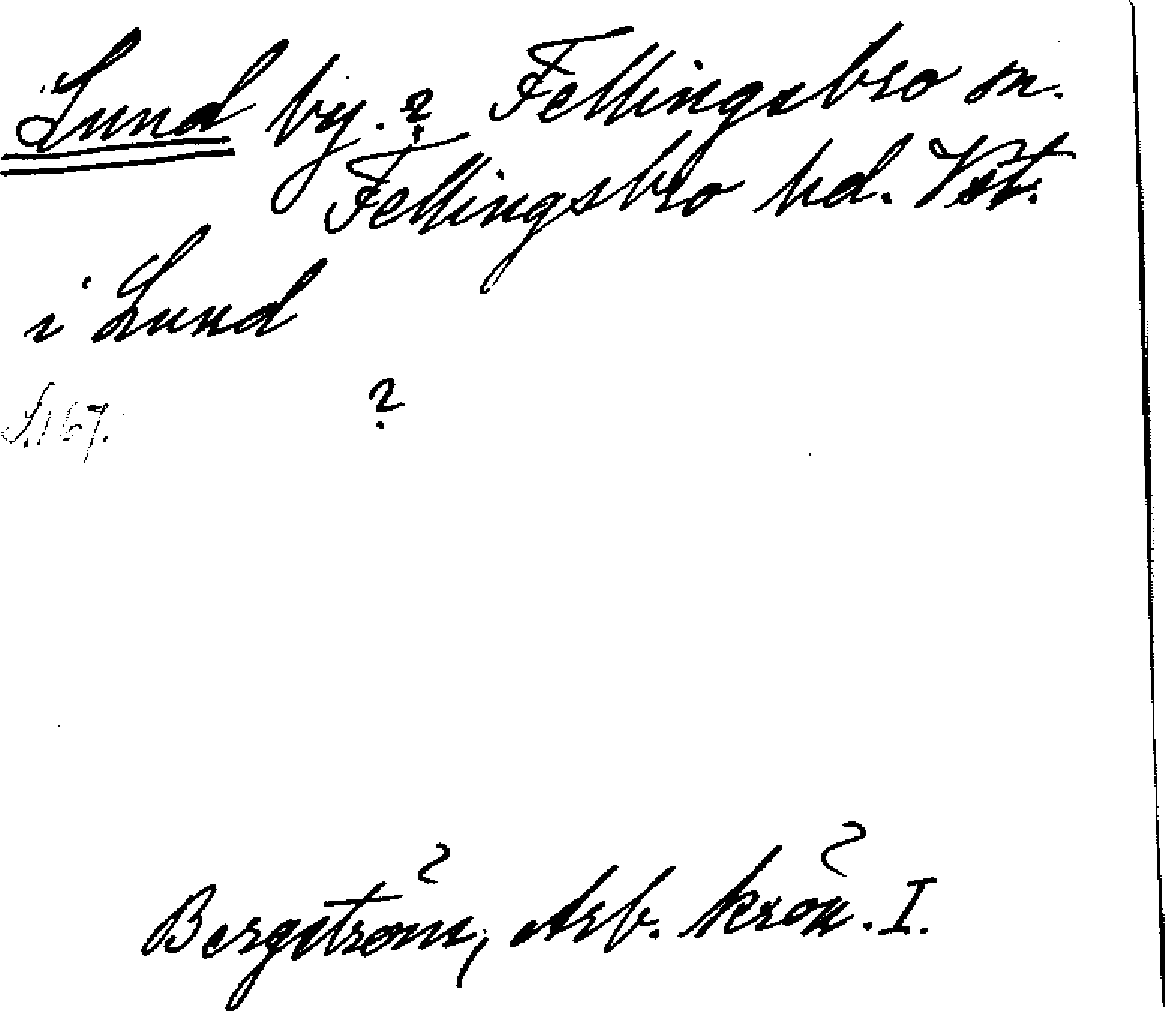 Lund by.? Fellingsbro sn.
Fellingsbro hd. Vstm.
i Lund
S. 167. ?
Bergström, Arb. krön. I.